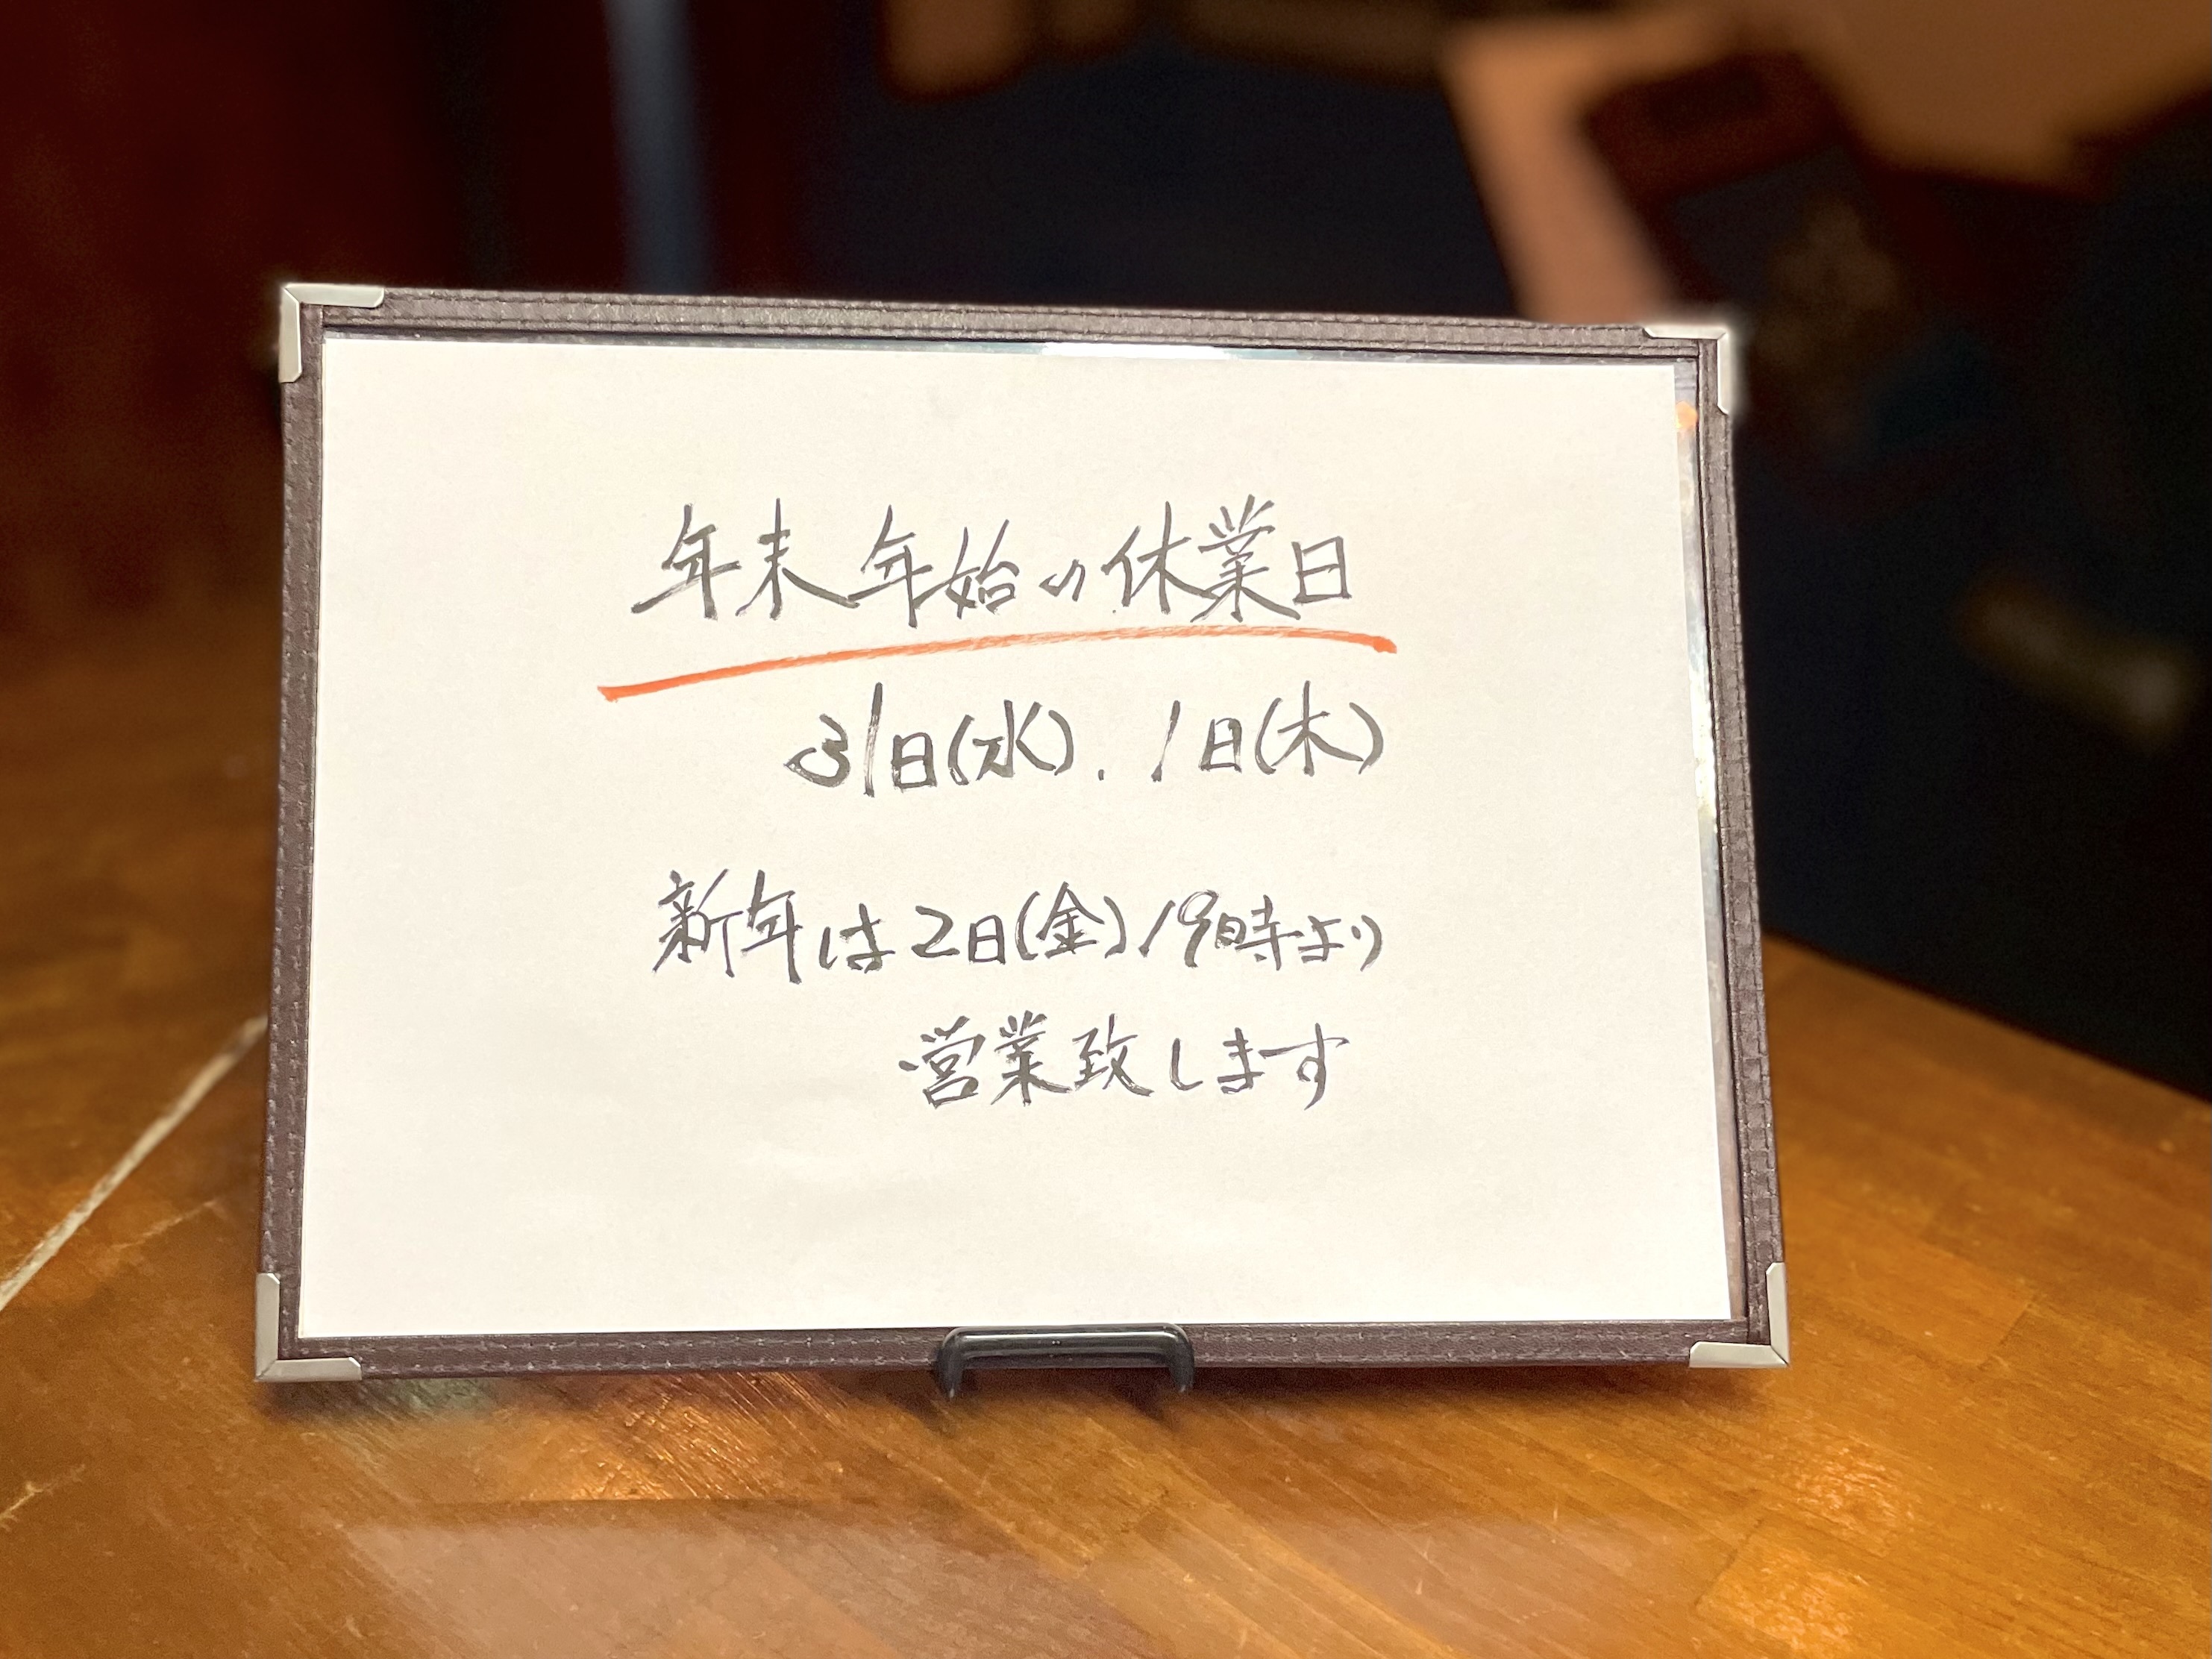 年末年始の休業日
31日(水).1日(木)
新年は2日(金)19時より
営業致します